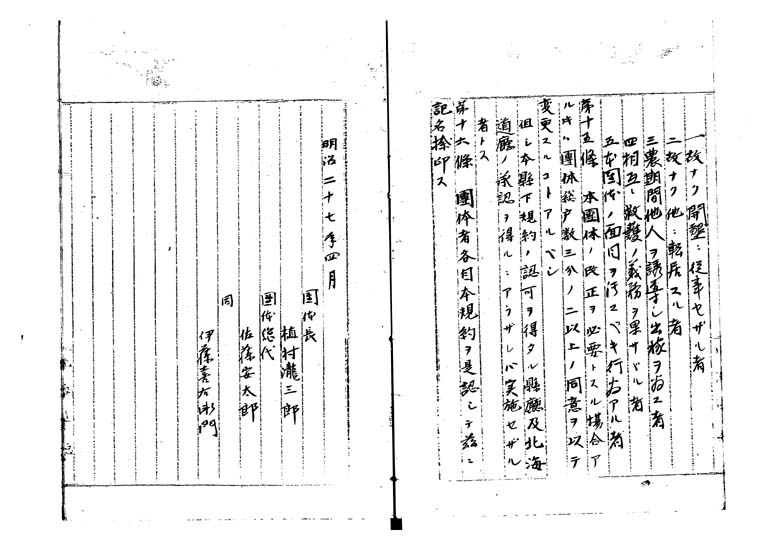 一 故ナク開墾ニ從事セザル者
二 故ナク他ニ転居スル者
三 農期間他人ヲ誘導シ出稼ヲ為ス者
四 相互ニ救護ノ義務ヲ果サバル者
五 本団体ノ面目ヲ汚スベキ行為アル者
第十五條 本團体ノ改正ヲ必要トスル場合ア
ルキハ團体総戸数三分ノ二以上ノ同意ヲ以テ
変更スルコトアルベシ
但シ本縣下規約ノ認可ヲ得タル縣廳及北海
道廳ノ承認ヲ得ルニアラザレバ実施セザル
者トス
第十六條 團体者各自本規約ヲ是認シテ茲ニ
記名捺印ス
明治二十七年四月
団体長
植村瀧三郎
団体総代
佐藤安太郎
同
伊藤喜右衛門